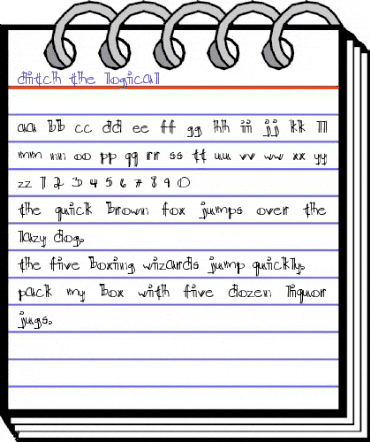 ditch the logical
aa bb cc dd ee ff gg hh ii jj kk ll
mm nn oo pp qq rr ss tt uu vv ww xx yy
zz 1 2 3 4 5 6 7 8 9 0
the quick brown fox jumps over the
lazy dog.
the five boxing wizards jump quickly.
pack my box with five dozen liquor
jugs.